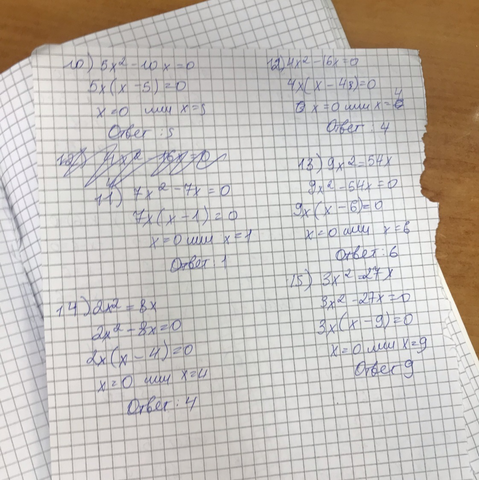 10) 5x² - 10x = 0
5x(x - 5) = 0
x = 0 или x = 5
Ответ: 5
12) 4x² - 16x = 0
4x(x - 4) = 0
x = 0 или x = 4
Ответ: 4
11) 7x² - 7x = 0
7x(x - 1) = 0
x = 0 или x = 1
Ответ 1
13) 9x² = 54x
9x² - 54x = 0
9x(x - 6) = 0
x = 0 или x = 6
Ответ: 6
14) 2x² = 8x
2x² - 8x = 0
2x(x - 4) = 0
x = 0 или x = 4
Ответ: 4
15) 3x² = 27x
3x² - 27x = 0
3x(x - 9) = 0
x = 0 или x = 9
Ответ 9